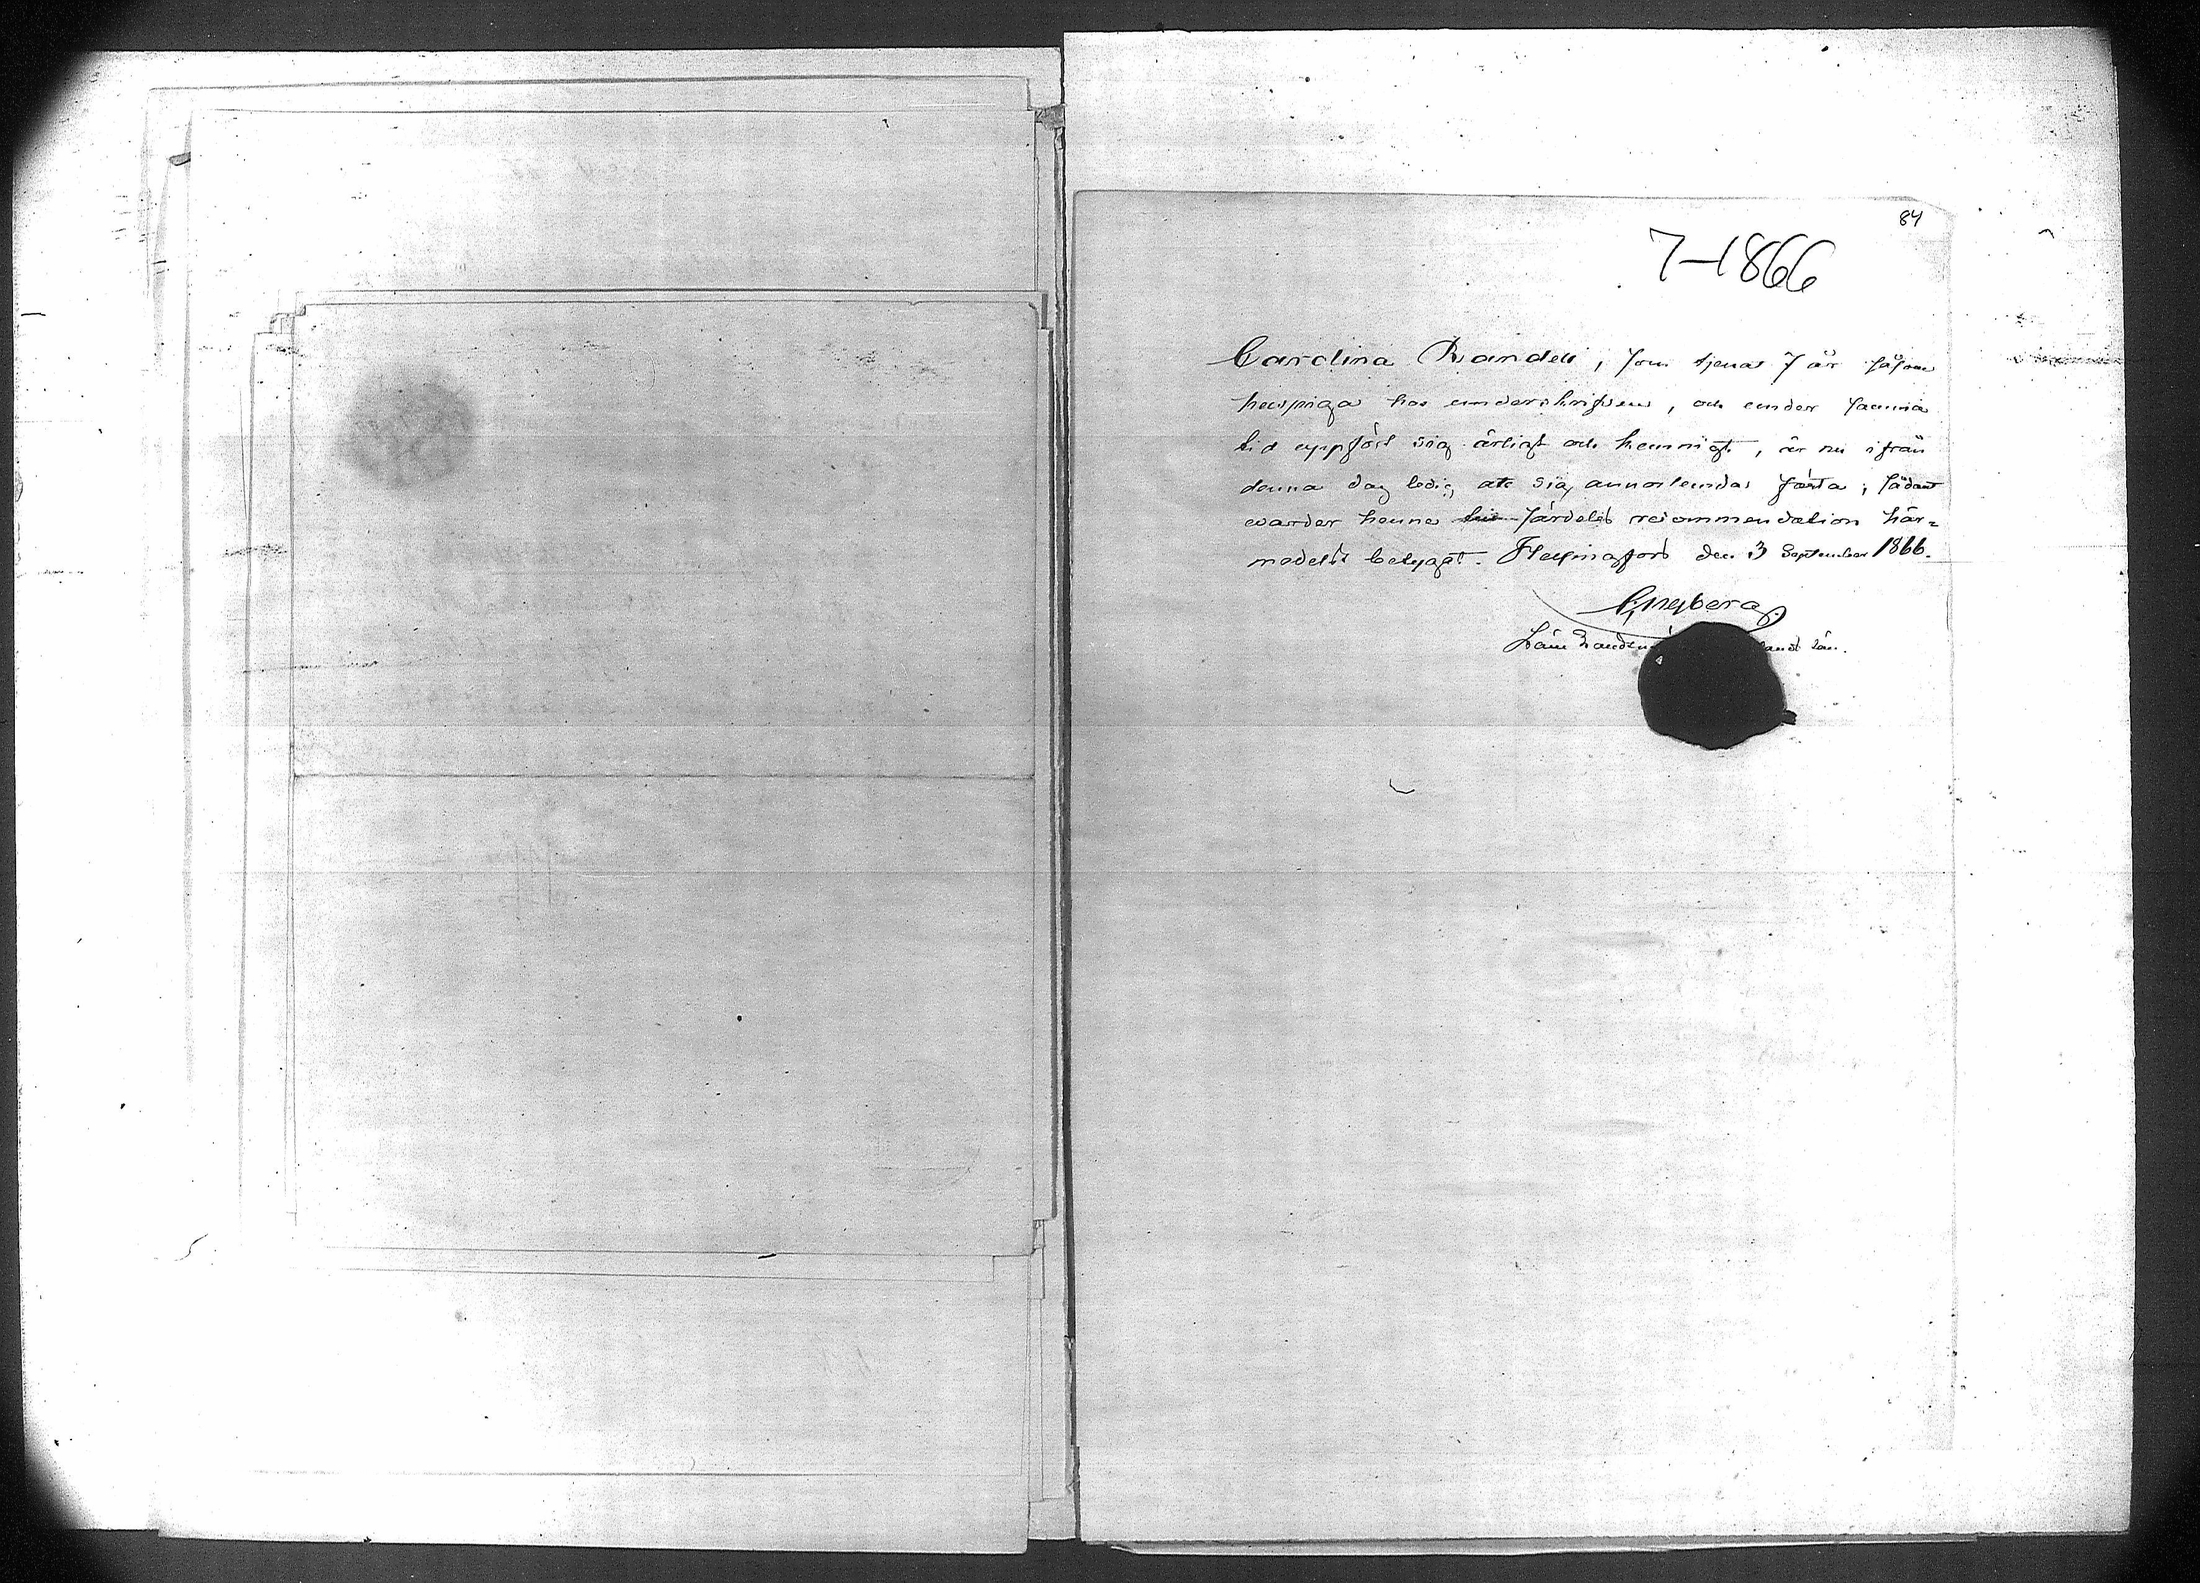 84
7-1866
Carolina Randell, som tjenat 7 år såsom
huspiga hos underskrifven, och under samma
tid uppfört sig ärligt och hennigt, är nu ifrån
denna dag ledig att sig annorlundas fästa; sådant
warder henne till särdeles recommendation här=
medelst betygat. Helsingfors den 3 September 1866.
Länt Landtm landt län.